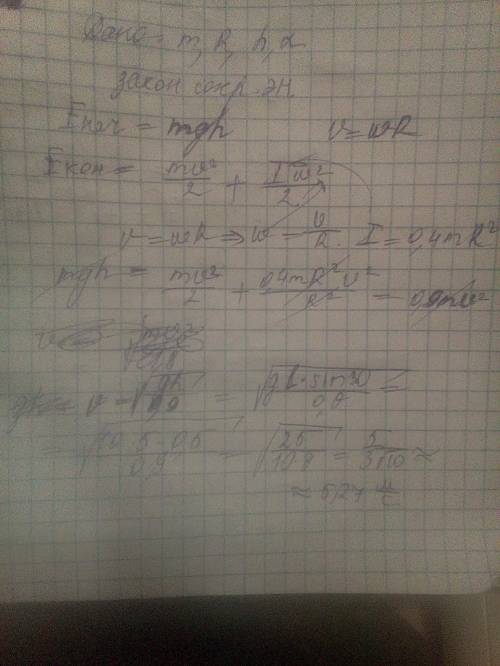 Дано: m, R, h, α
закон сохр. эн.
Eнач = mgh     v = wR
Eкон = mv²/2 + Iw²/2
v = wR ⇒ w = v/R. I = 0,4mR²
mgh = mv²/2 + 0,4mR²v²/R² = 0,9mv²
v = √(gh/0,9) = √(gL·sin30/0,9) =
= √(10·5·0,5/0,9) = √(25/0,9) = 5/ ≈
≈ 5,27 м/с